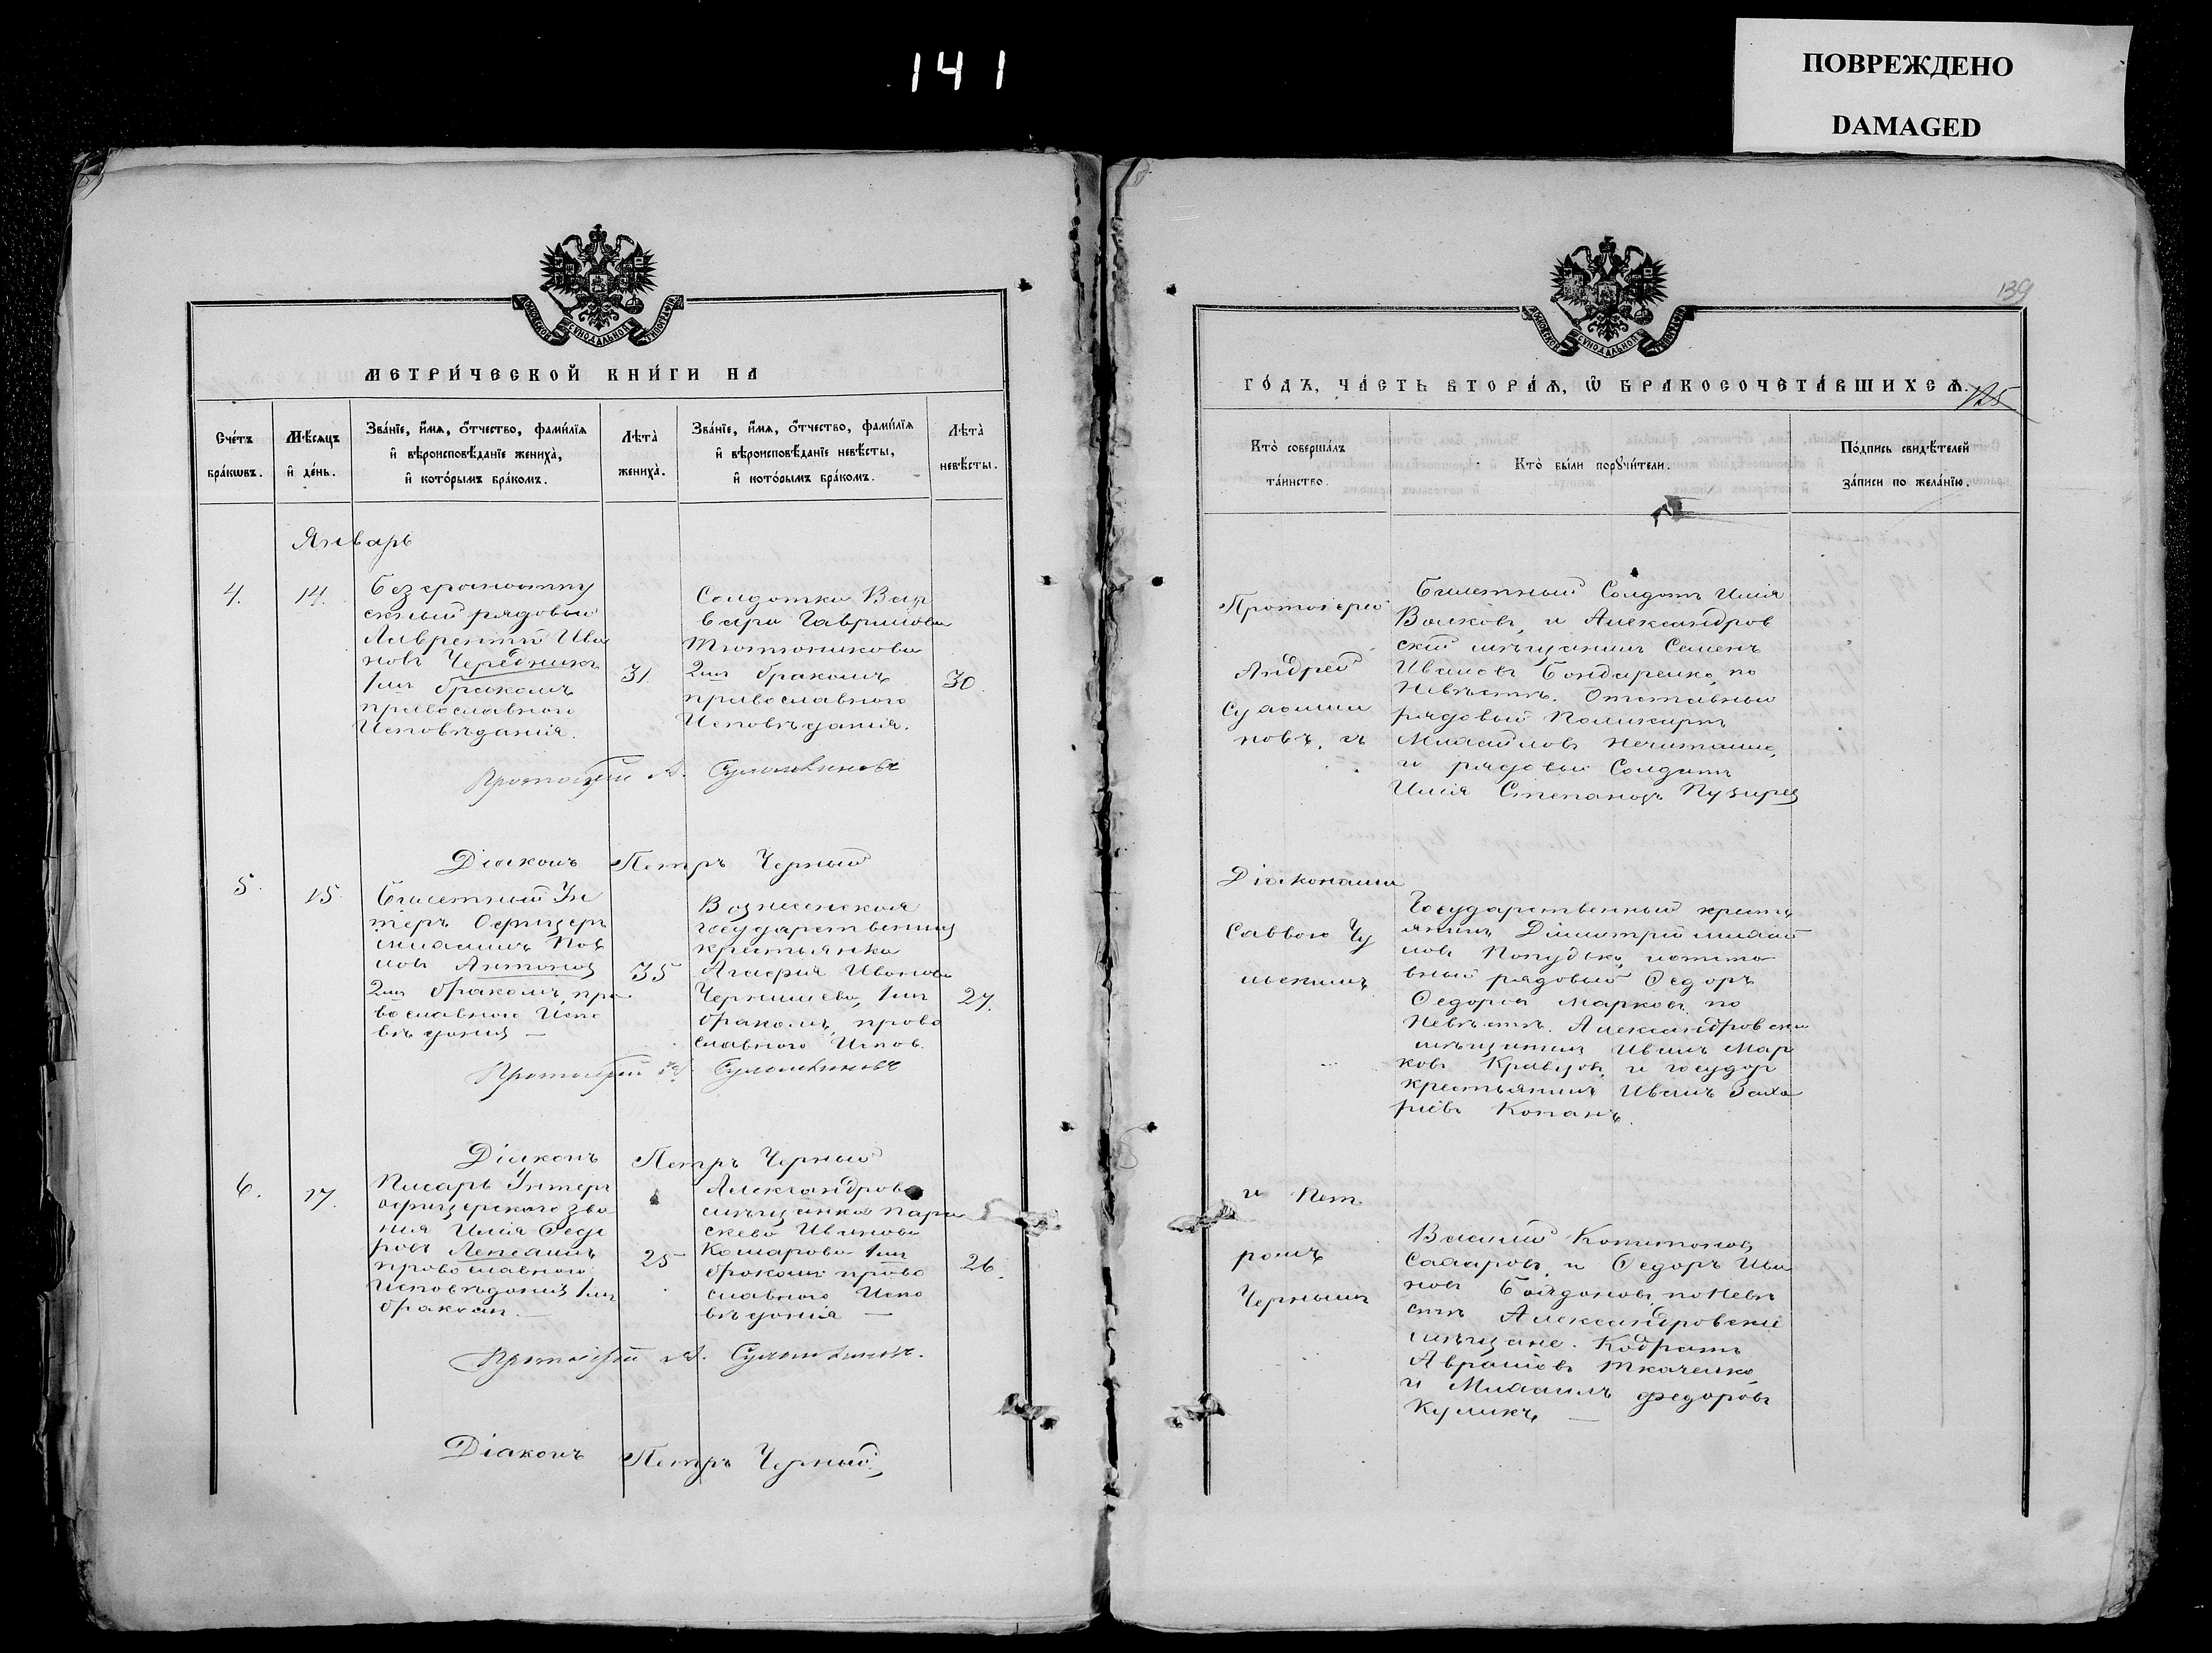 141
ПОВРЕЖДЕНО
DAMAGED
МЕТРИ́ЧЕСКОЙ КНИ́ГИ НА
Сче́тъ бра́кѡвъ.
Мѣ́сяцъ и҆ де́нь.
Зва́нїе, и҆́мя, ѻ҆́тчество, фами́лїя и҆ вѣроисповѣ́данїе жениха̀, и҆ кото́рымъ бра́комъ.
Лѣта̀ жениха̀.
Зва́нїе, и҆́мя, ѻ҆́тчество, фами́лїя и҆ вѣроисповѣ́данїе невѣ́сты, и҆ кото́рымъ бра́комъ.
Лѣта̀ невѣ́сты.
Январь
4.
14.
Безсрочноотпу
скный рядовый
Лаврентій Ива
новъ Чередникъ
1мъ бракомъ
православнаго
Исповѣданія.
31.
Солдатка Вар
вара Гаврилова
Тютюникова
2мъ бракомъ
православнаго
Исповѣданія.
30.
Протоіерей А.
Діаконъ Петръ Черный
5.
15.
Билетный Ун
теръ Офицеръ
Михаилъ Пав
ловъ Антонов
2мъ бракомъ, пра
вославнаго Испо
вѣданія —
35
Вознесенская
государственная
крестьянка
Иванова
Чернышева, 1мъ
бракомъ, право
славного Испов.
27.
Протоіерей А.
Діаконъ Петръ Черный
6.
17.
Писарь Унтеръ
офицерского зва
нія Илія Федо
ровъ
православнаго
Исповѣданія 1мъ
бракомъ —
25
Александров
мѣщанка Пара
скева Иванова
Комарова 1мъ
бракомъ право
славного Испо
вѣданія —
26.
Протоіерей А.
Діаконъ Петръ Черный
139
ГО́ДЪ, ЧА́СТЬ ВТОРА́Ѧ, Ѡ҆ БРАКОСОЧЕТА́ВШИХСѦ.
125
Кто̀ соверша́лъ та́инство.
Кто̀ бы́ли порꙋчи́тели.
По́дпись свидѣ́телей за́писи по жела́нїю.
Протоіерей
Андрей
новъ, съ
Діаконами
Саввою Чу
и Пет
ромъ
Чернымъ
Билетный Солдатъ Илія
Волковъ, и Александров
скій мѣщанинъ Семенъ
Ивановъ Бондаренко, по
Невѣстѣ. Отставный
рядовый Поликарпъ
Михайловъ
и рядовый Солдатъ
Илія Степановъ Пузырев
Государственный кресть
янинъ Димитрій Михай
ловъ
рядовый Федоръ
Федоровъ Марковъ, по
Невѣстѣ. Александровскій
мѣщанинъ Иванъ Мар
ковъ Кравцовъ, и государ
крестьянинъ Иванъ Заха
ріевъ Копанъ.
Василій Капитонов
и Федоръ Ива
новъ по Невѣ
стѣ Александровскіе
мѣщане. Кодратъ
Аврамовъ Ткаченко
и Михаилъ Федоровъ
Куликъ. —